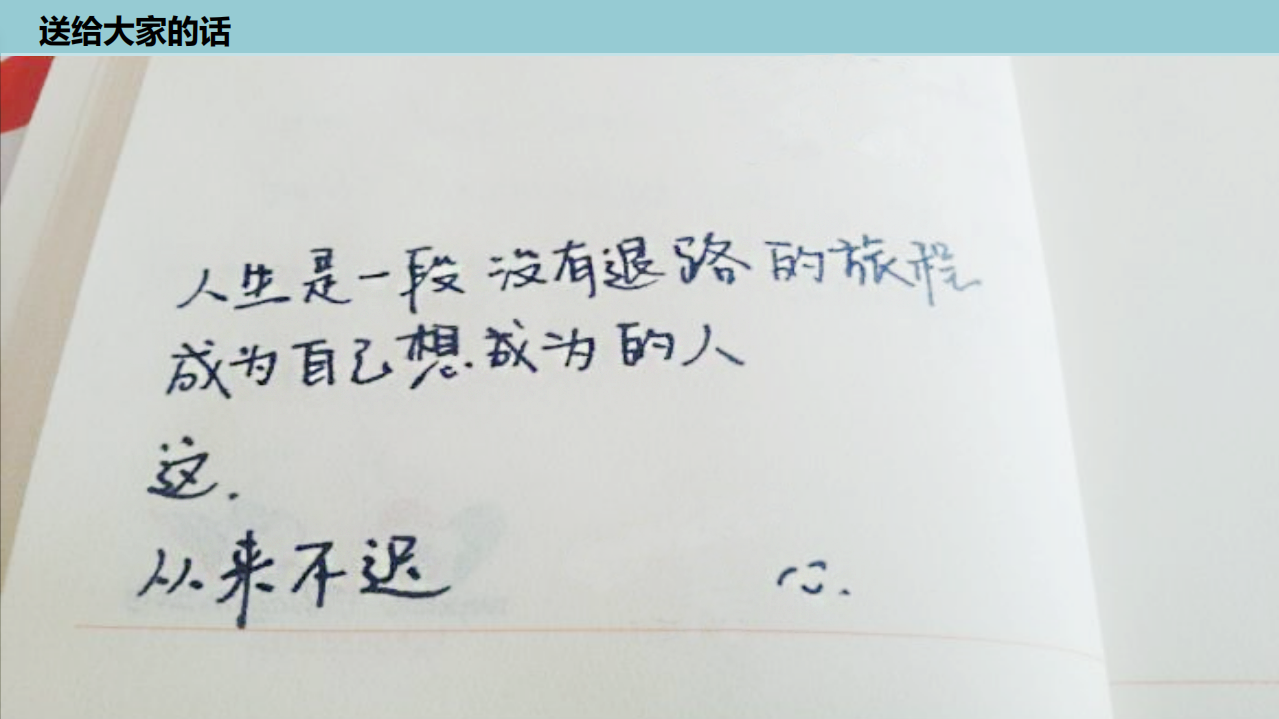 送给大家的话
人生是一段没有退路的旅程
成为自己想成为的人
这.
从来不迟